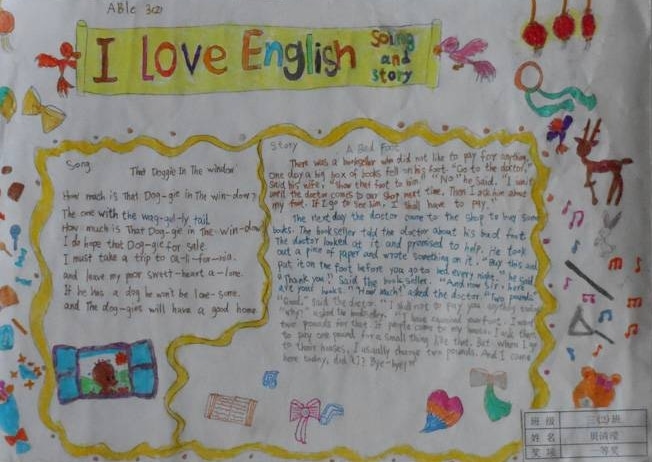 ABle 3(2)
I love English
Song
and
story
Song
That Doggie In The window
How much is That Dog-gie in The win-dow?
The one with the wag-gl-ly tail
How much is That Dog-gie in The win-dow
I do hope that Dog-gie for sale.
I must take a trip to ca-li-for-nia.
and leave my poor sweet-heart a-lone.
If he has a dog he won't be lone-some.
and The dog-gies will have a good home
Story
A Bad Foot
There was a bookseller who did not like to pay for anything.
One day a big box of books fell on his foot. "Go to the doctor,"
said his wife, "show that foot to him." "No," he said. "I wait
until the doctor comes to our shop next time. Then I ask him about
my foot. If I go to see him, I shall have to pay."
The next day the doctor came to the shop to buy some
books. The bookseller told the doctor about his bad foot.
The doctor looked at it and promised to help. He took
out a piece of paper and wrote something on it. "Buy this and
put it on the foot before you go to bed every night," he said
"Thank you" Said the book seller. "And now Sir, here
are your books." "How much?" asked the doctor "Two pounds"
"Good." Said the doctor. "I shall not to pay you anything today
"Why?" asked the bookseller. "I have examined your foot. I want
two pounds for that. If people come to my house, I ask them
to pay one pound for a small thing like that. But when I go
to their houses, I usually charge two pounds. And I came
here today, did I? Bye-bye!"
班级 三(2)班
姓名
奖项 一等奖